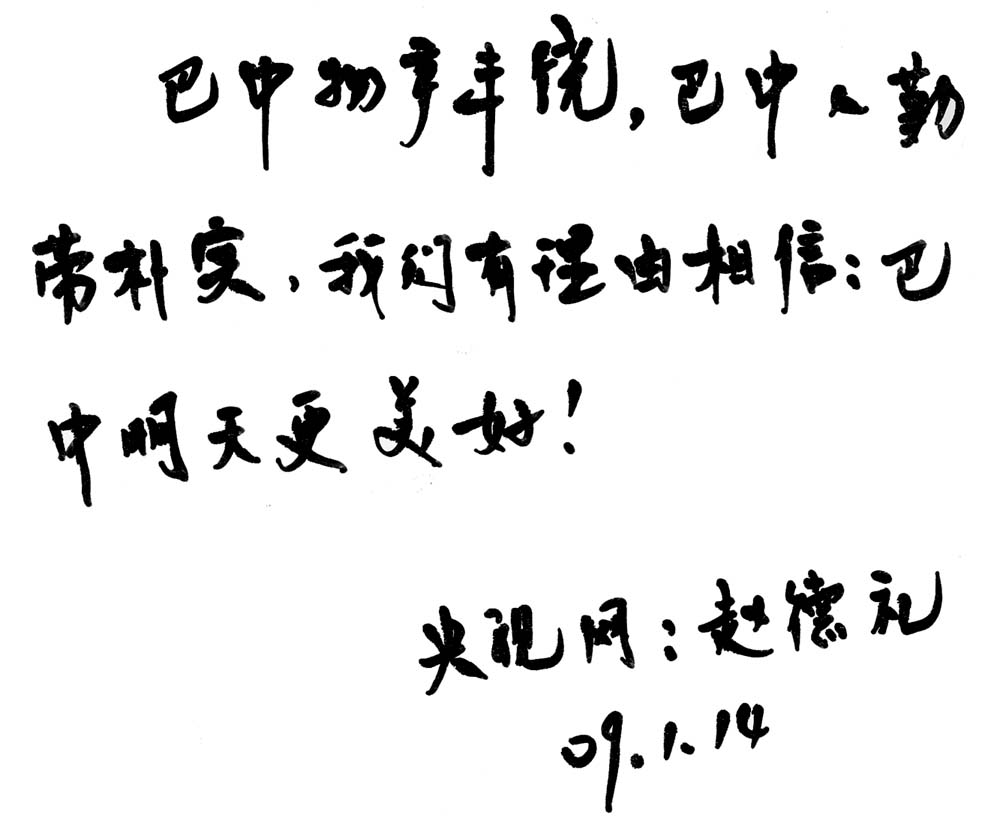 巴中物产丰饶，巴中人勤
劳朴实，我们有理由相信：巴
中明天更美好！
央视网：赵德礼
09.1.14